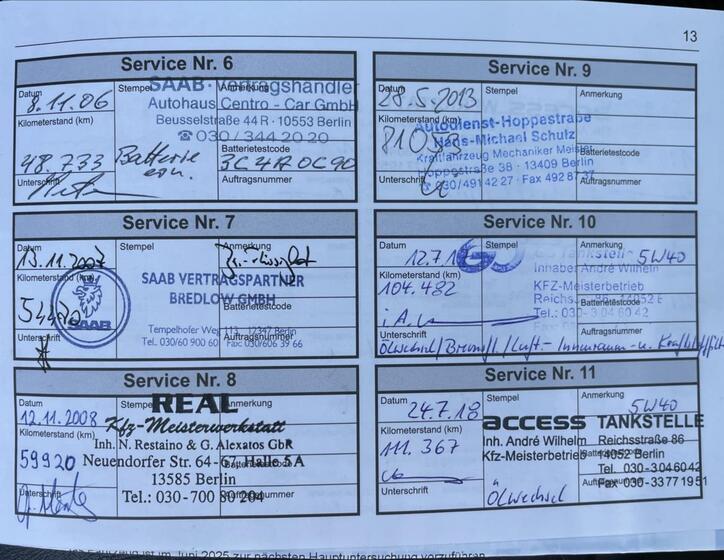 13
Service Nr. 6
Datum
8.11.06
Stempel
Anmerkung
SAAB · Vertragshändler
Autohaus Centro - Car GmbH
Beusselstraße 44 R · 10553 Berlin
☎ 030 / 344 20 20
Kilometerstand (km)
48.733
Batterie
Batterietestcode
3C4R0C90
Unterschrift
Auftragsnummer
Service Nr. 7
Datum
13.11.2007
Stempel
Anmerkung
Kilometerstand (km)
SAAB
SAAB VERTRAGSPARTNER
BREDLOW GMBH
Batterietestcode
Tempelhofer Weg 113 12347 Berlin
Tel. 030/60 900 60 Fax 030/606 39 66
Unterschrift
Auftragsnummer
Service Nr. 8
Datum
12.11.2008
Stempel
Anmerkung
REAL
Kfz-Meisterwerkstatt
Inh. N. Restaino & G. Alexatos GbR
Neuendorfer Str. 64-67, Halle 5A
13585 Berlin
Tel.: 030-700 80 204
Kilometerstand (km)
59920
Batterietestcode
Unterschrift
Auftragsnummer
Service Nr. 9
Datum
28.5.2013
Stempel
Anmerkung
Kilometerstand (km)
Autodienst-Hoppestraße
Hans-Michael Schulz
Kraftfahrzeug Mechaniker Meister
Hoppestraße 38 · 13409 Berlin
030/491 42 27 · Fax 492 87 37
Batterietestcode
Unterschrift
Auftragsnummer
Service Nr. 10
Datum
12.7.1
Stempel
Anmerkung
5W40
Tankstelle
Inhaber André Wilhelm
KFZ-Meisterbetrieb
Tel.: 030-3 04 60 42
Kilometerstand (km)
104.482
i.A.
Unterschrift
Ölwechsel/Bremsfl./Luft.-Innenraum-u. Kraftstofffilter
Service Nr. 11
Datum
24.7.18
Stempel
Anmerkung
5W40
access TANKSTELLE
Inh. André Wilhelm Reichsstraße 86
Kfz-Meisterbetrieb 14052 Berlin
Tel. 030-3046042
Fax 030-33771951
Kilometerstand (km)
111.367
Unterschrift
Ölwechsel
Auftragsnummer
ist im Juni 2025 zur nächsten Hauptuntersuchung vorzuführen